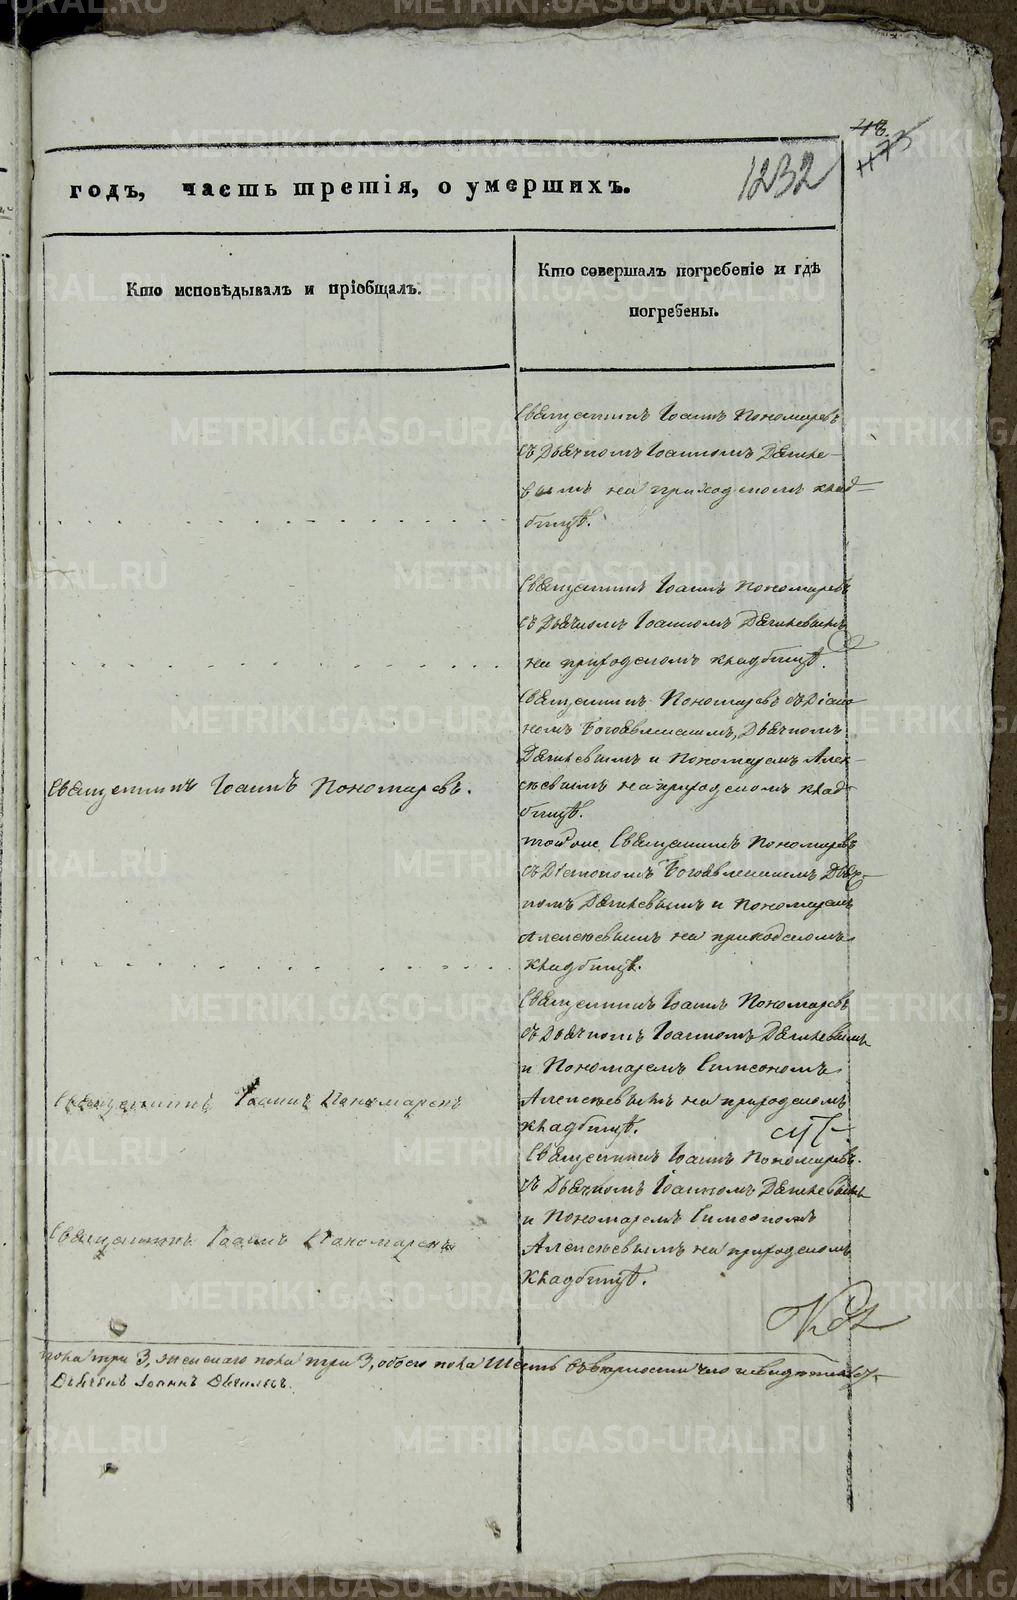 48.
473
1232
годъ, часть третія, о умершихъ.
Кто исповѣдывалъ и пріобщалъ.
Кто совершалъ погребеніе и гдѣ
погребены.
Священникъ Іоаннъ Пономаревъ
съ Дьячкомъ Іоанномъ Дягиле-
вымъ на приходскомъ клад-
бищѣ.
Священникъ Іоаннъ Пономаревъ
съ Дьячкомъ Іоанномъ Дягилевымъ
на приходскомъ кладбищѣ.
Священникъ Іоаннъ Пономаревъ.
Священникъ Пономаревъ съ Діако-
номъ Богоявленскимъ, Дьячкомъ
Дягилевымъ и Пономаремъ Алек-
сѣевымъ на приходскомъ клад-
бищѣ.
тотже Священникъ Пономаревъ
съ Діакономъ Богоявленскимъ Дьяч-
комъ Дягилевымъ и Пономаремъ
Алексѣевымъ на приходскомъ
кладбищѣ.
Священникъ Іоаннъ Пономаревъ
Священникъ Іоаннъ Пономаревъ
съ Дьячкомъ Іоанномъ Дягилевымъ
и Пономаремъ Симеономъ
Алексѣевымъ на приходскомъ
кладбищѣ.
Священникъ Іоаннъ Пономаревъ
Священникъ Іоаннъ Пономаревъ.
съ Дьячкомъ Іоанномъ Дягилевымъ
и Пономаремъ Симеономъ
Алексѣевымъ на приходскомъ
кладбищѣ.
пола три 3, женскаго пола три 3, обоего пола шесть въ вѣрности чего
Дьячекъ Іоаннъ Дягилевъ.